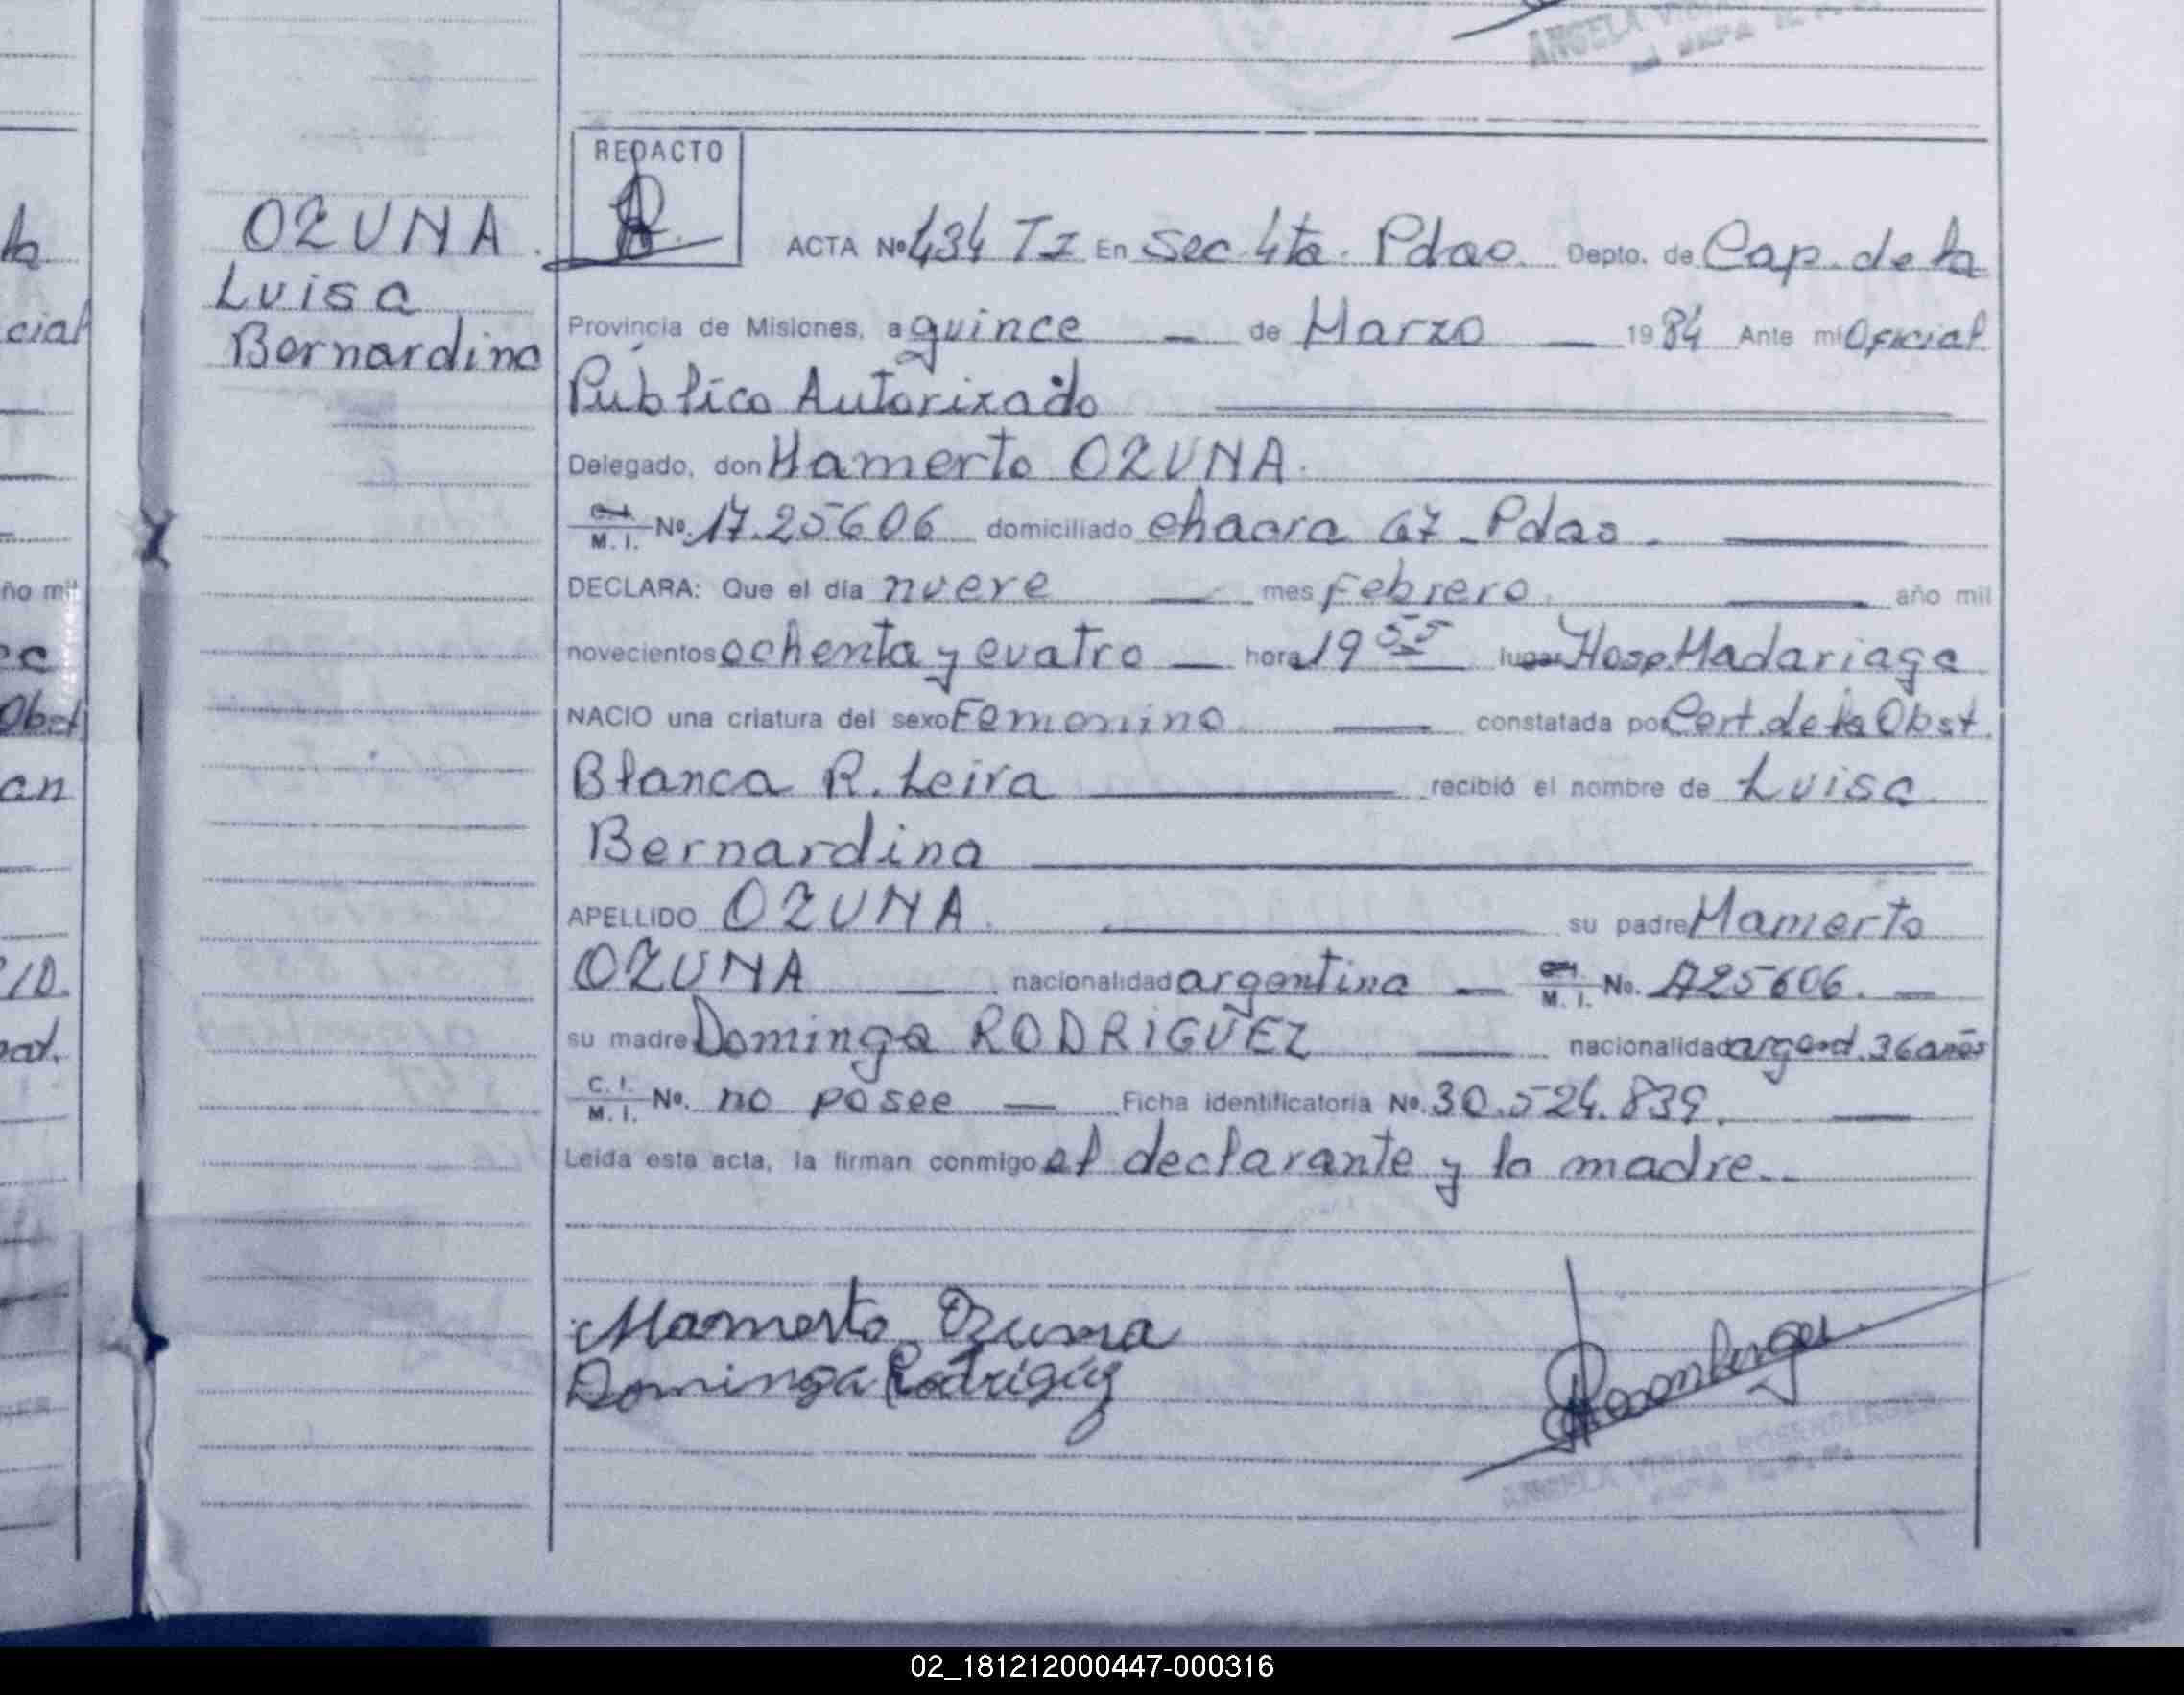 ANGELA
REDACTO
OZUNA
Luisa
Bernardina
ACTA Nº 434 TI En Sec. 4ta. Pdas. Depto. de Cap. de la
Provincia de Misiones, a quince — de Marzo — 1984 Ante mi Oficial
Público Autorizado
Delegado, don Mamerto OZUNA.
C.I. M. I. Nº. domiciliado chacra 67 - Pdas. —
DECLARA: Que el día nueve — mes Febrero — año mil
novecientos ochenta y cuatro — hora 19 55 lugar Hosp. Madariaga
NACIO una criatura del sexo Femenino — constatada por Cert. de la Obst.
Blanca R. Leiva — recibió el nombre de Luisa
Bernardina
APELLIDO OZUNA. — su padre Mamerto
OZUNA — nacionalidad argentina — M. I. No. —
su madre Dominga RODRIGUEZ — nacionalidad 36 años
C. I. M. I. Nº. no posee — Ficha identificatoria Nº. 30.524.839. —
Leída esta acta, la firman conmigo el declarante y la madre.
Mamerto Ozuna
Dominga Rodriguez
Rosenberger
ANGELA VIVIAN ROSENBERGER
ño mil
cial
Obst
an
02_181212000447-000316